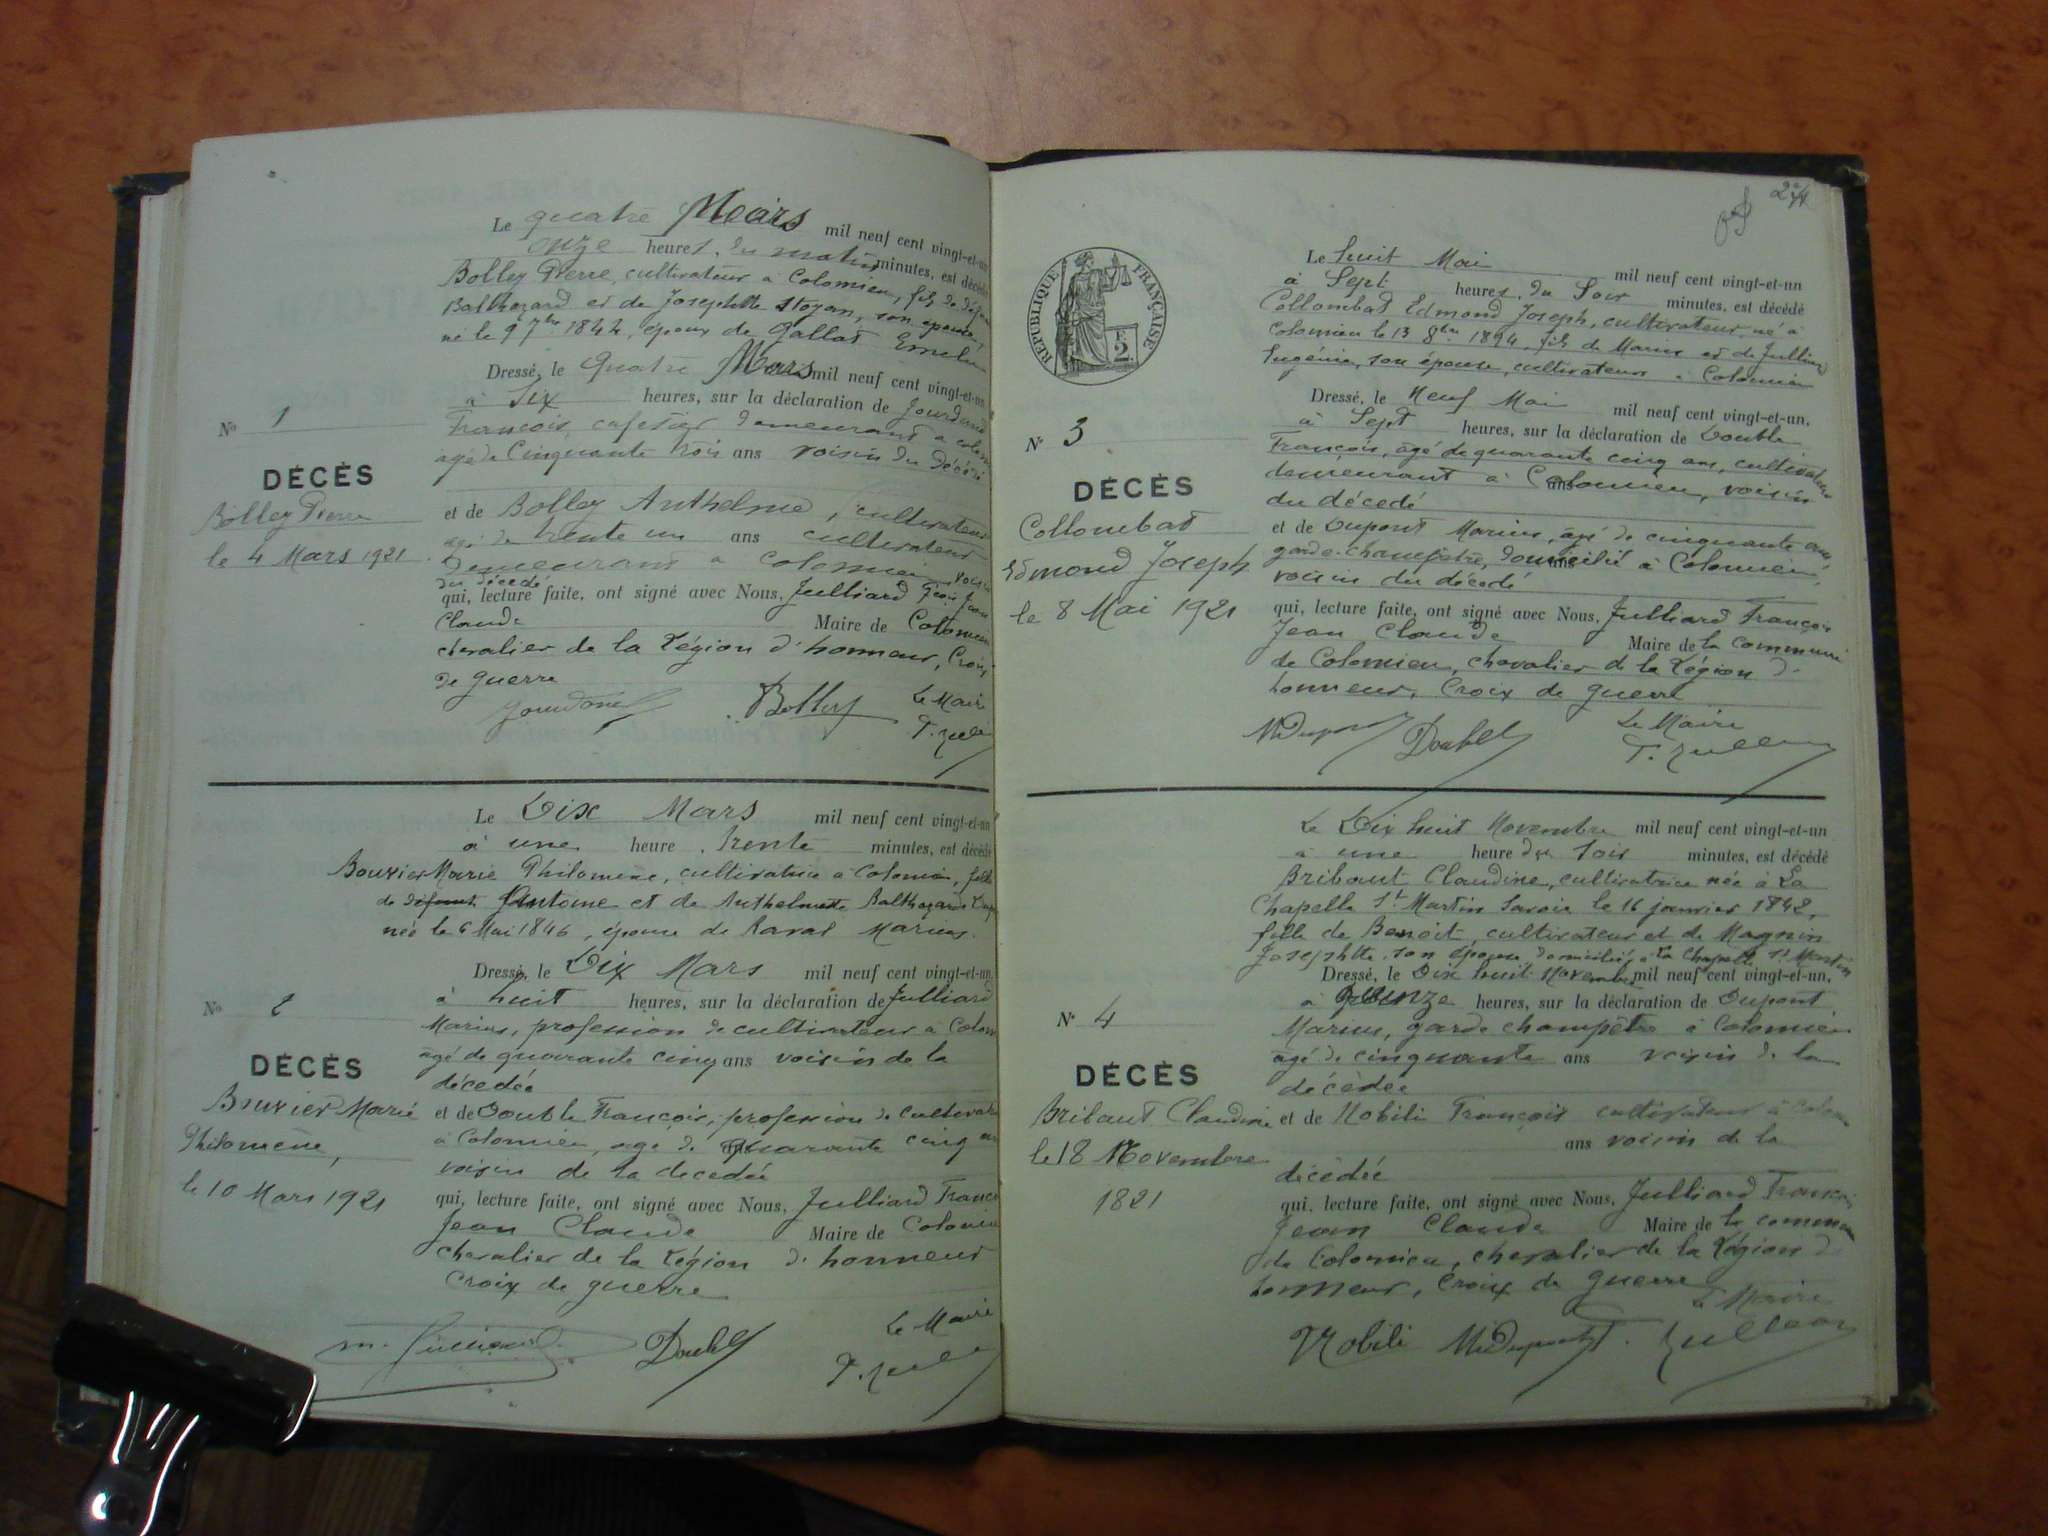 Le quatre Mars mil neuf cent vingt-et-un
onze heures, du matin minutes, est décédé
Bolley Pierre, cultivateur à Colomieu, fils de défunt
Balthazard et de Josephtte son épouse,
né le 9 7bre 1844, époux de Gallat
Dressé, le Quatre Mars mil neuf cent vingt-et-un,
à Six heures, sur la déclaration de
François, cafetier demeurant à
âgé de Cinquante trois ans voisin du décédé
Nº 1
DÉCÈS
Bolley Pierre
le 4 Mars 1921
et de Bolley Anthelme, cultivateur
âgé de trente un ans cultivateur
demeurant à Colomieu voisin
du décédé
qui, lecture faite, ont signé avec Nous, Julliard
Claude Maire de Colomieu
chevalier de la Légion d'honneur, Croix
de guerre
Bolley Le Maire
Le Dix Mars mil neuf cent vingt-et-un
à une heure trente minutes, est décédé
Bouvier Marie Philomène, cultivatrice à Colomieu, fille
de défunt Antoine et de Anthelmette Balthazard
née le 6 Mai 1846, épouse de Raval Marius.
Dressé, le Dix Mars mil neuf cent vingt-et-un,
à huit heures, sur la déclaration de Julliard
Marius, profession de cultivateur à Colom
âgé de quarante cinq ans voisin de la
décédée
Nº 2
DÉCÈS
Bouvier Marie
Philomène,
le 10 Mars 1921
et de Double François, profession de cultivateur
à Colomieu, age de quarante cinq an
voisin de la decedée
qui, lecture faite, ont signé avec Nous, Julliard Franco
Jean Claude Maire de Colomieu
chevalier de la Légion d'honneur
Croix de guerre
Le Maire
Doubl
RÉPUBLIQUE FRANÇAISE
F
2
Le huit Mai mil neuf cent vingt-et-un
à Sept heures, du Soir minutes, est décédé
Collombat Edmond Joseph, cultivateur né à
Colomieu le 13 8bre 1894, fils de Marius et de Julliard
Eugénie, son épouse, cultivateurs à Colomieu
Dressé, le Neuf Mai mil neuf cent vingt-et-un,
à Sept heures, sur la déclaration de Double
François, âgé de quarante cinq ans, cultivateur
demeurant à Colomieu, voisin
du décédé
Nº 3
DÉCÈS
Collombat
Edmond Joseph
le 8 Mai 1921
et de Dupont Marius, âgé de cinquante ans
garde-champêtre, domicilié à Colomieu,
voisin du décédé
qui, lecture faite, ont signé avec Nous, Julliard François
Jean Claude Maire de la commune
de Colomieu, chevalier de la Légion d'
honneur, Croix de guerre
Doubl Le Maire
Le Dix huit Novembre mil neuf cent vingt-et-un
à une heure du soir minutes, est décédé
Bribaut Claudine, cultivatrice née à La
Chapelle St Martin Savoie le 16 janvier 1842,
fille de Benoit, cultivateur et de Magnin
Josephtte son épouse domiciliés à La Chapelle St Martin
Dressé, le Dix huit Novembre mil neuf cent vingt-et-un,
à quinze heures, sur la déclaration de Dupont
Marius, garde champêtre à Colomieu
âgé de cinquante ans voisin de la
décédée
Nº 4
DÉCÈS
Bribaut Claudine
le 18 Novembre
1821
et de Nobili François cultivateur à Colom
ans voisin de la
décédée
qui, lecture faite, ont signé avec Nous, Julliard François
Jean Claude Maire de la commune
de Colomieu, chevalier de la Légion d
honneur, Croix de guerre
Le Maire
Nobili